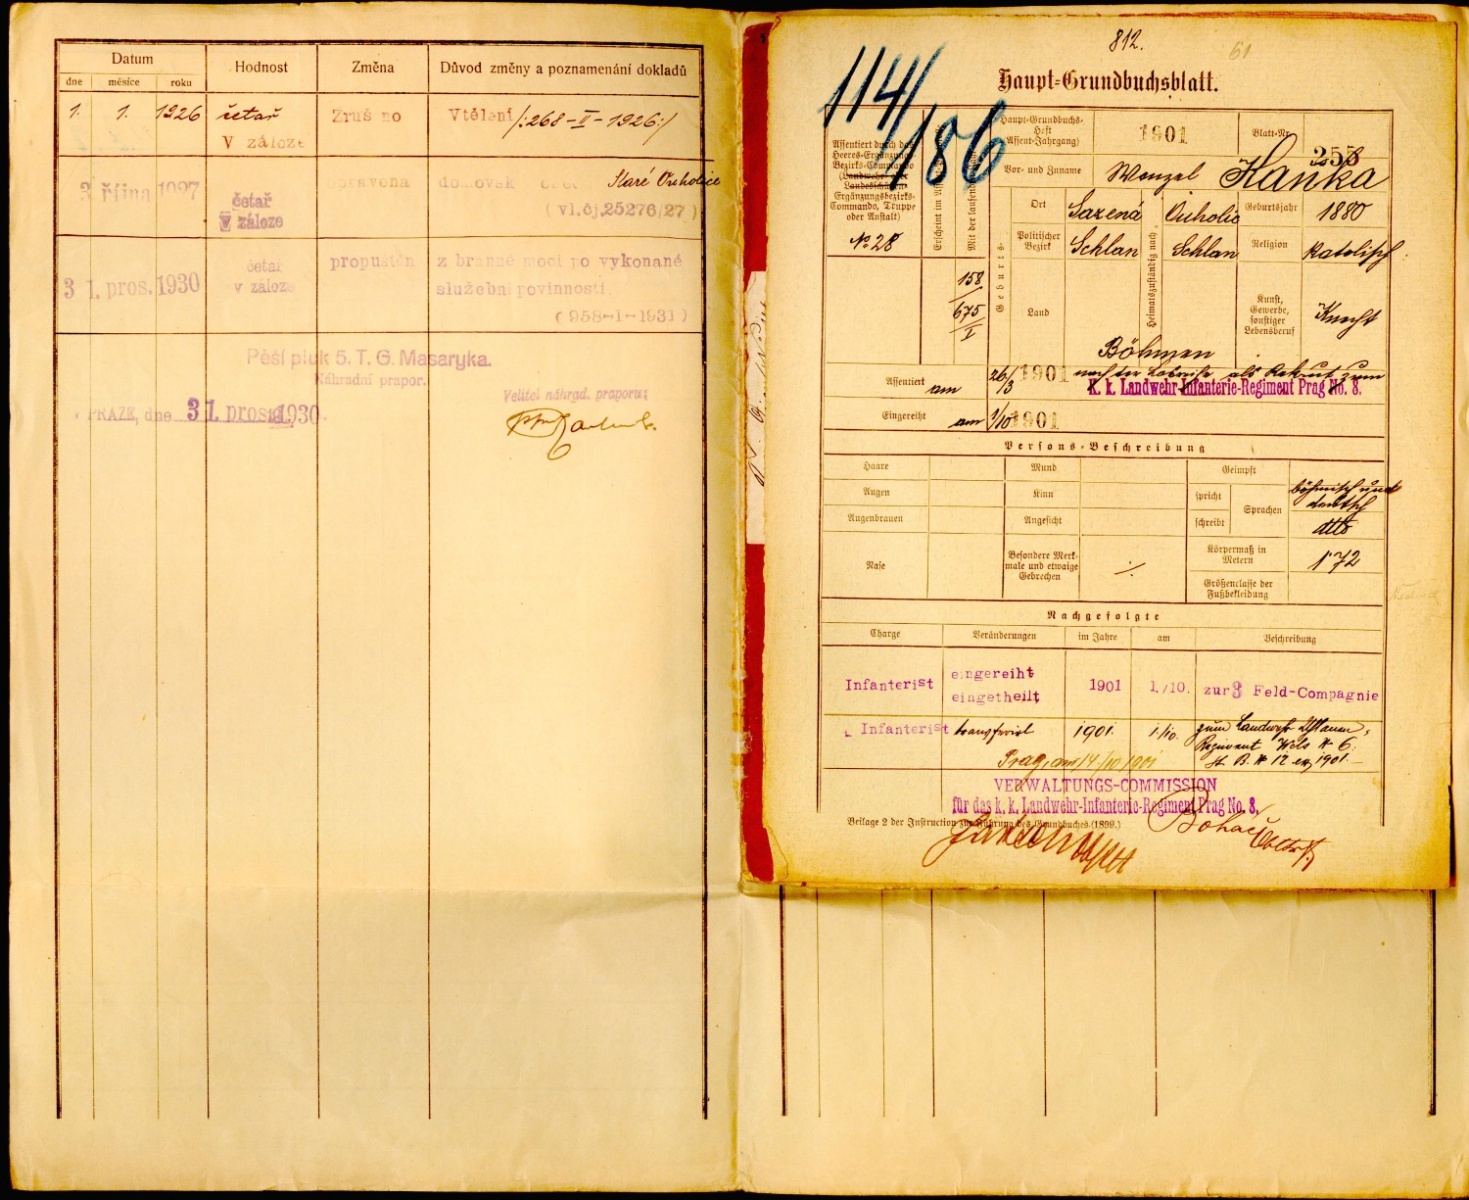 Datum
Hodnost
Změna
Důvod změny a poznamenání dokladů
dne
měsíce
roku
1. 1. 1926
četař
V záloze
Zruš no
Vtělení /:268-II-1926:/
3 října 1927
četař
V záloze
opravena
domovsk
Staré Ouholice
( vl.čj.25276/27 )
31. pros. 1930
četař
v záloze
propuštěn
z branné moci po vykonané
služební povinnosti.
( 958-I-1931 )
Pěší pluk 5. T. G. Masaryka.
Náhradní prapor.
V PRAZE, dne 31. pros. 1930.
Velitel náhrad. praporu:
812.
61
114/
186
Haupt-Grundbuchsblatt.
Assentiert durch das
Heeres-Ergänzungs-
Bezirks-Commando
(Landwehr- oder
Landesschützen-
Ergänzungsbezirks-
Commando, Truppe
oder Anstalt)
No 28
Erscheint im
Mit der laufenden
158/
675/I
Haupt-Grundbuchs-
Heft
(Assent-Jahrgang)
1901
Blatt-Nr.
255
Vor- und Zuname
Wenzel Hanka
Geburts-
Ort
Sazená
Heimatszuständig nach
Ouholic
Geburtsjahr
1880
Politischer
Bezirk
Schlan
Schlan
Religion
katolisch
Land
Böhmen
Kunst,
Gewerbe,
sonstiger
Lebensberuf
Knecht
Assentiert
am 26/3 1901 nach der Losreihe als Rekrut zum
K. k. Landwehr-Infanterie-Regiment Prag No. 8.
Eingereiht
am 1/10 1901
Persons-Beschreibung
Haare
Mund
Geimpft
Augen
Kinn
spricht
Sprachen
böhmisch und
deutsch
Augenbrauen
Angesicht
schreibt
dtto
Nase
Besondere Merk-
male und etwaige
Gebrechen
./.
Körpermaß in
Metern
1'72
Größenclasse der
Fußbekleidung
Nachgefolgte
Charge
Veränderungen
im Jahre
am
Beschreibung
Infanterist
eingereiht
eingetheilt
1901
1./10.
zur 3 Feld-Compagnie
Infanterist
transferirt
1901.
1./10.
zum Landwehr Uhlanen-
Regiment Wels No 6.
St. B. No 12 ex 1901.
Prag, am 14/10 1901
VERWALTUNGS-COMMISSION
für das k. k. Landwehr-Infanterie-Regiment Prag No. 8,
Beilage 2 der Instruction zur Führung des Grundbuches (1899.)